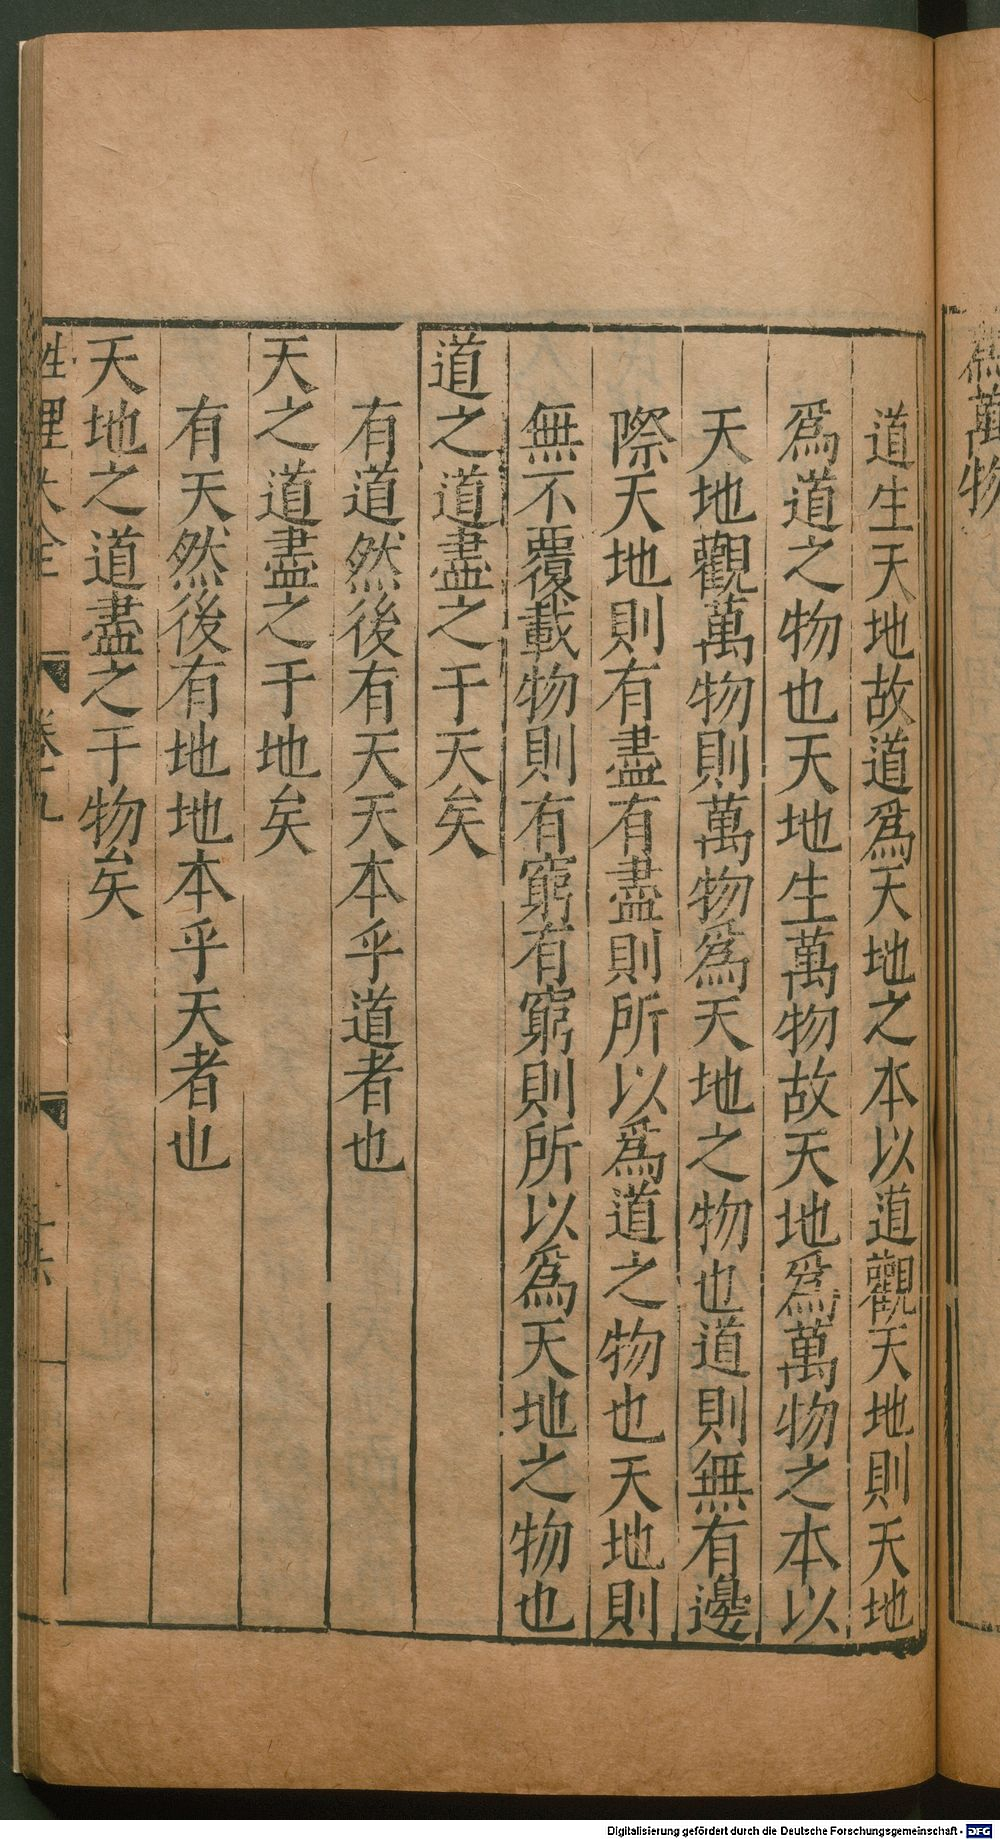 無萬物
道生天地故道爲天地之本以道觀天地則天地
爲道之物也天地生萬物故天地爲萬物之本以
天地觀萬物則萬物爲天地之物也道則無有邊
際天地則有盡有盡則所以爲道之物也天地則
無不覆載物則有窮有窮則所以爲天地之物也
道之道盡之于天矣
有道然後有天天本乎道者也
天之道盡之于地矣
有天然後有地地本乎天者也
天地之道盡之于物矣
性理大全 卷九 十六
Digitalisierung gefördert durch die Deutsche Forschungsgemeinschaft - DFG